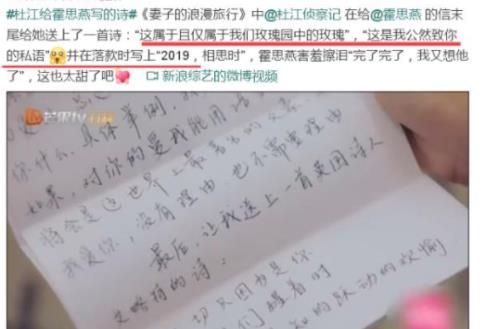 #杜江给霍思燕写的诗#《妻子的浪漫旅行》中@杜江侦察记 在给@霍思燕 的信末
尾给她送上了一首诗：“这属于且仅属于我们玫瑰园中的玫瑰”，“这是我公然致你
的私语”并在落款时写上“2019，相思时”，霍思燕害羞擦泪“完了完了，我又想他
了”，这也太甜了吧 新浪综艺的微博视频
芒果tv
你什么，具体举例，我
如果，对你的爱我能用语
将会是这世界上最
我爱你，没有理由，也不需要理由
最后，让我送上一首英国诗人
艾略特的诗：
切只因为是你
们醒着时
的跃动的欢愉